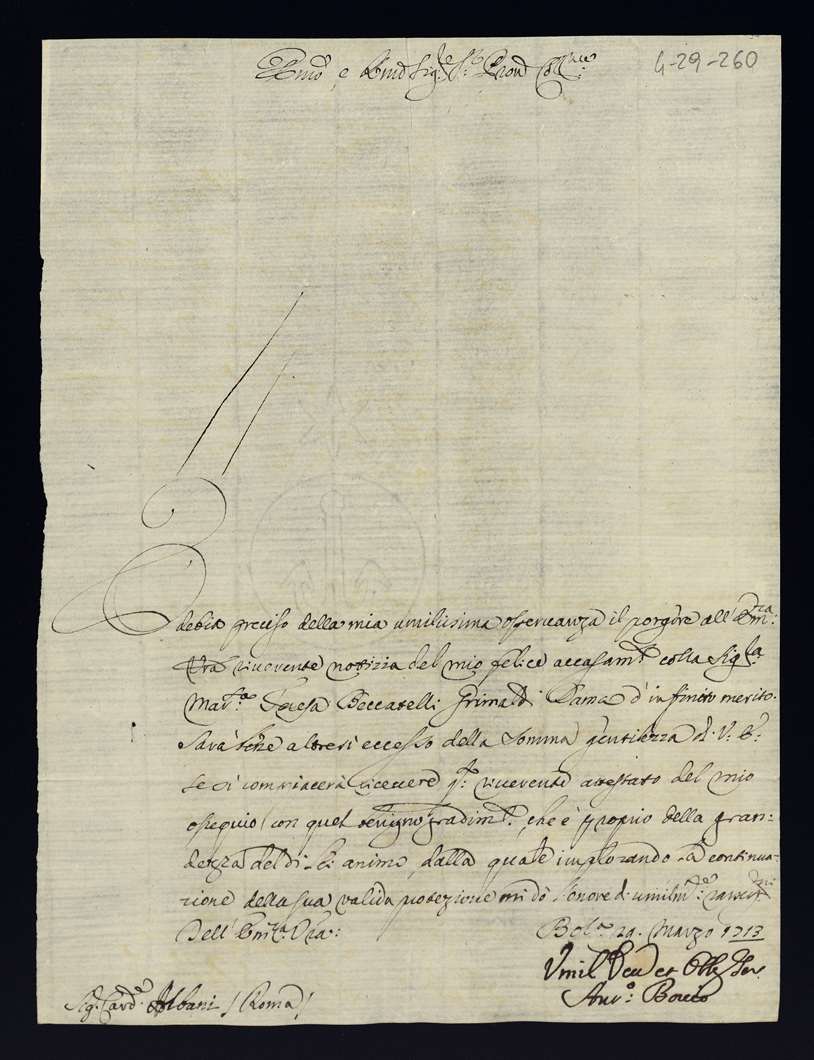 Em͞o e Rm͞o Sig.re S.r Pron͞e Coll.mo
4-29-260
È debito preciso della mia umilissima osservanza il porgere all'Em.za
V͞ra riverente notizia del mio felice accasam.to colla Sig.ra
Mar.sa Teresa Beccatelli Grimaldi Dama d'infinito merito.
Sarà bene altresì eccesso della somma gentilezza di V: E:
se si compiacerà ricevere q.to riverente attestato del mio
ossequio con quel benigno gradim.to, che è proprio della gran=
dezza del di Lei animo, dalla quale implorando la continua=
zione della sua valida protezione mi dò l'onore d'umilm.te
Dell'Em.za V͞ra:
Bol.a 29. Marzo 1713
Umil Dev et Obb Ser.
Ant.o
Sig.r Card.le Albani / Roma /